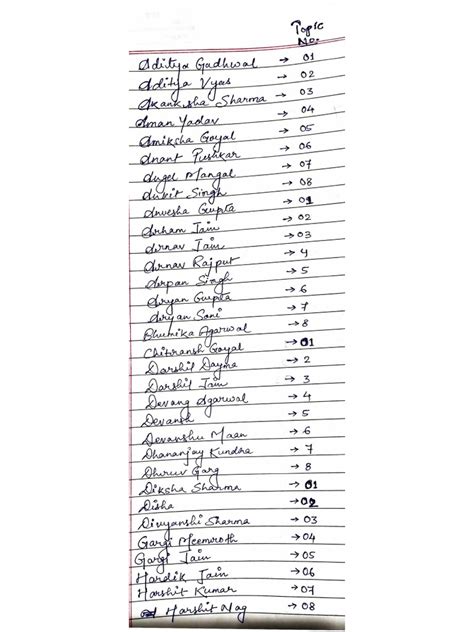 Topic
No.
Aditya Gadhwal → 01
Aditya Vyas → 02
Akanksha Sharma → 03
Aman Yadav → 04
Amiksha Goyal → 05
Anant Pushkar → 06
Angel Mangal → 07
Ankit Singh → 08
Anvesha Gupta → 01
Arham Jain → 02
Arnav Jain → 03
Arnav Rajput → 4
Arpan Singh → 5
Aryan Gupta → 6
Aryan Soni → 7
Bhumika Agarwal → 8
Chitransh Goyal → 01
Darshil Dayma → 2
Darshil Jain → 3
Devang Agarwal → 4
Devansh → 5
Devanshu Maan → 6
Dhananjay Kundra → 7
Dhruv Garg → 8
Diksha Sharma → 01
Disha → 02
Divyanshi Sharma → 03
Gargi Meemroth → 04
Gargi Jain → 05
Hardik Jain → 06
Harshit Kumar → 07
Harshit Nag → 08